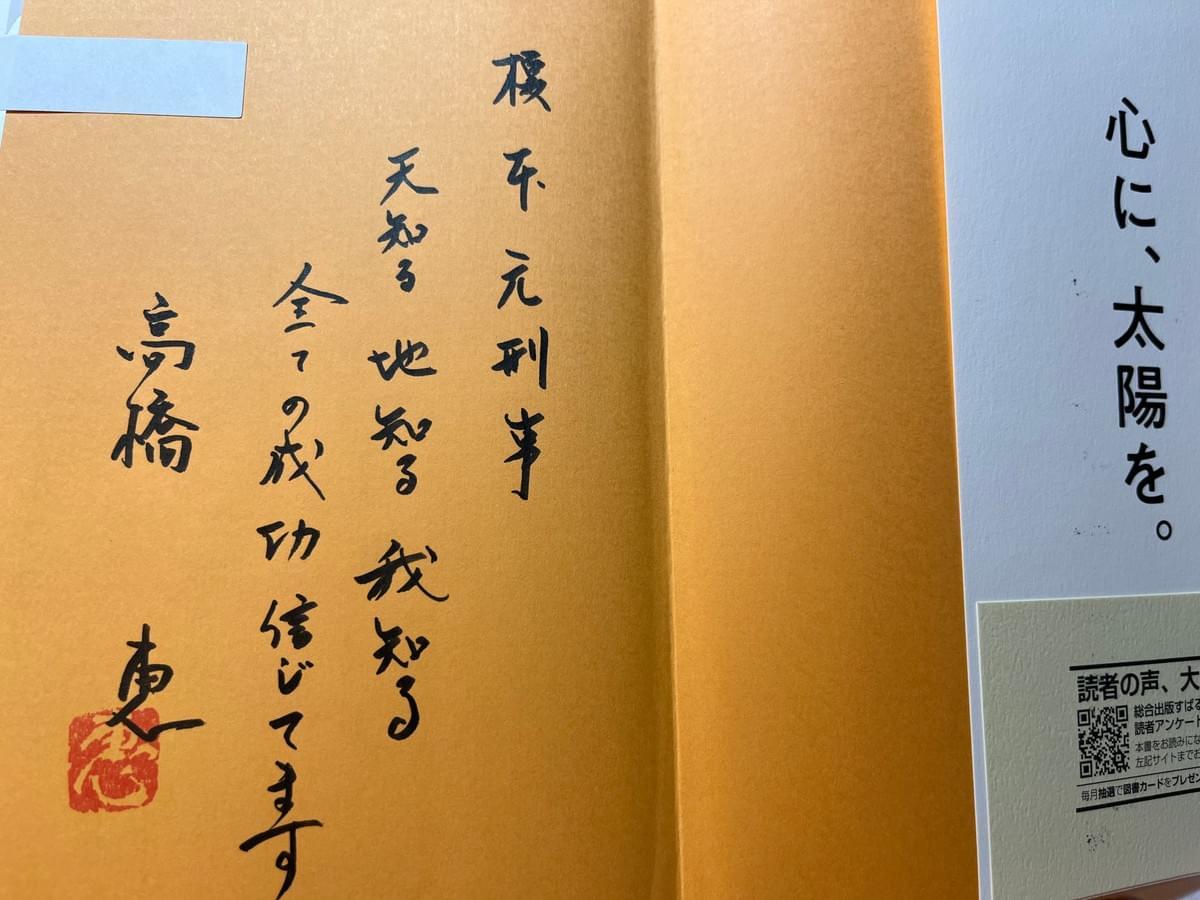 心に、太陽を。
読者の声、大
総合出版すばる
読者アンケート
本書をお読みにな
左記サイトまでお
毎月抽選で図書カードをプレゼン
榎本 元刑事
天知る 地知る 我知る
全ての成功信じてます
高橋 恵